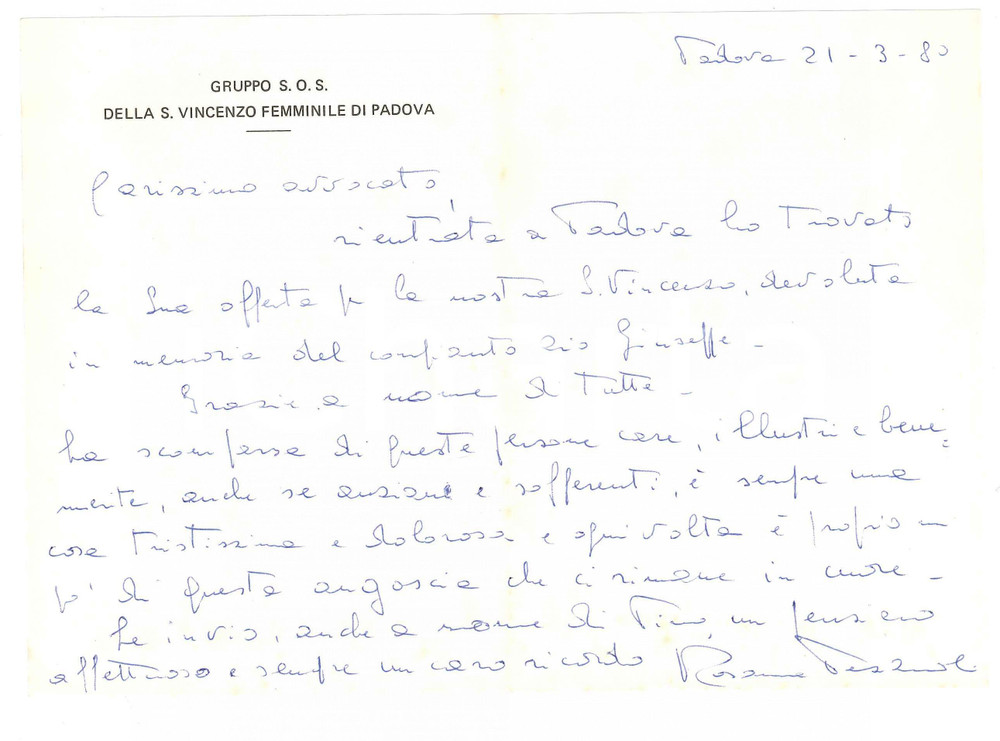 Padova 21-3-80
GRUPPO S.O.S.
DELLA S. VINCENZO FEMMINILE DI PADOVA
Carissimo avvocato,
rientrata a Padova ho trovato
la Sua offerta p la nostra S. Vincenzo, devoluta
in memoria del compianto zio Giuseppe -
Grazie a nome di tutte -
La scomparsa di queste persone care, illustri e bene=
merite, anche se anziane e sofferenti, è sempre una
cosa tristissima e dolorosa e ogni volta è proprio un
po' di questa angoscia che ci rimane in cuore -
Le invio, anche a nome di Tino, un pensiero
affettuoso e sempre un caro ricordo Rosanna